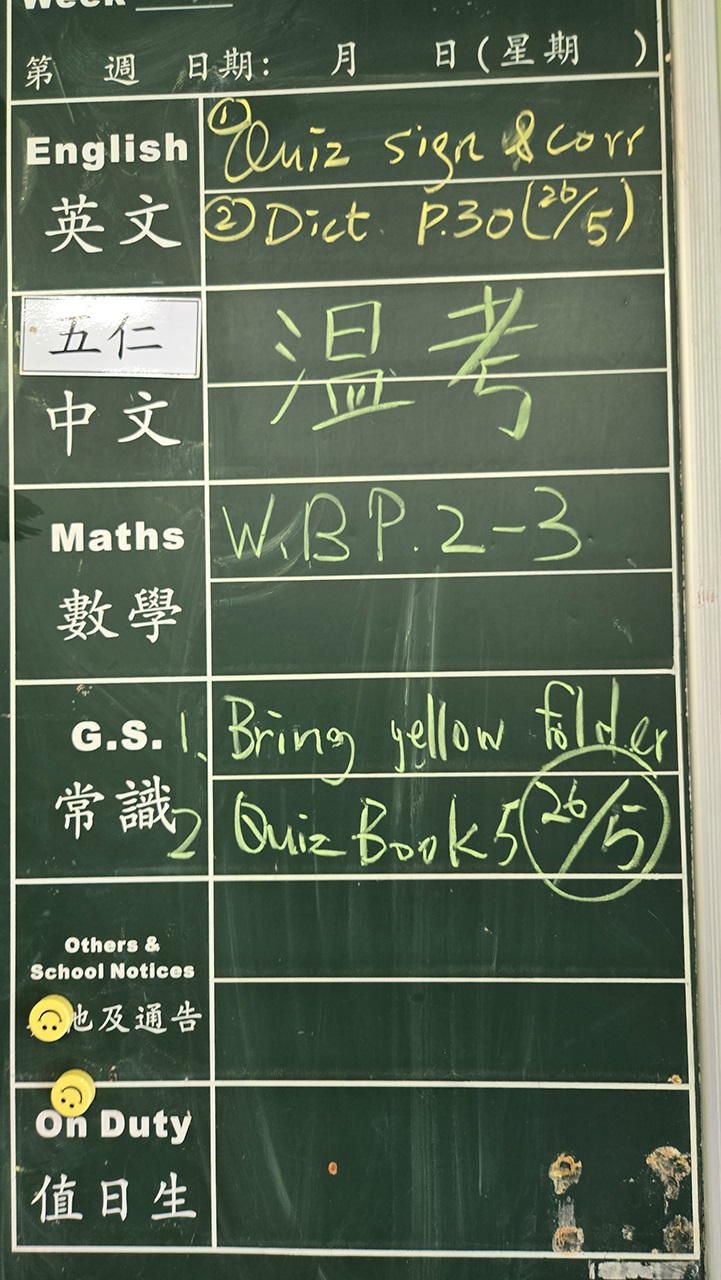 Week
第 週 日期: 月 日(星期 )
English
英文
① Quiz sign & corr
② Dict. P.30 (26/5)
五仁
中文
溫考
Maths
數學
W.B P.2-3
G.S.
常識
1. Bring yellow folder
2 Quiz Book 5 26/5
Others &
School Notices
他及通告
On Duty
值日生